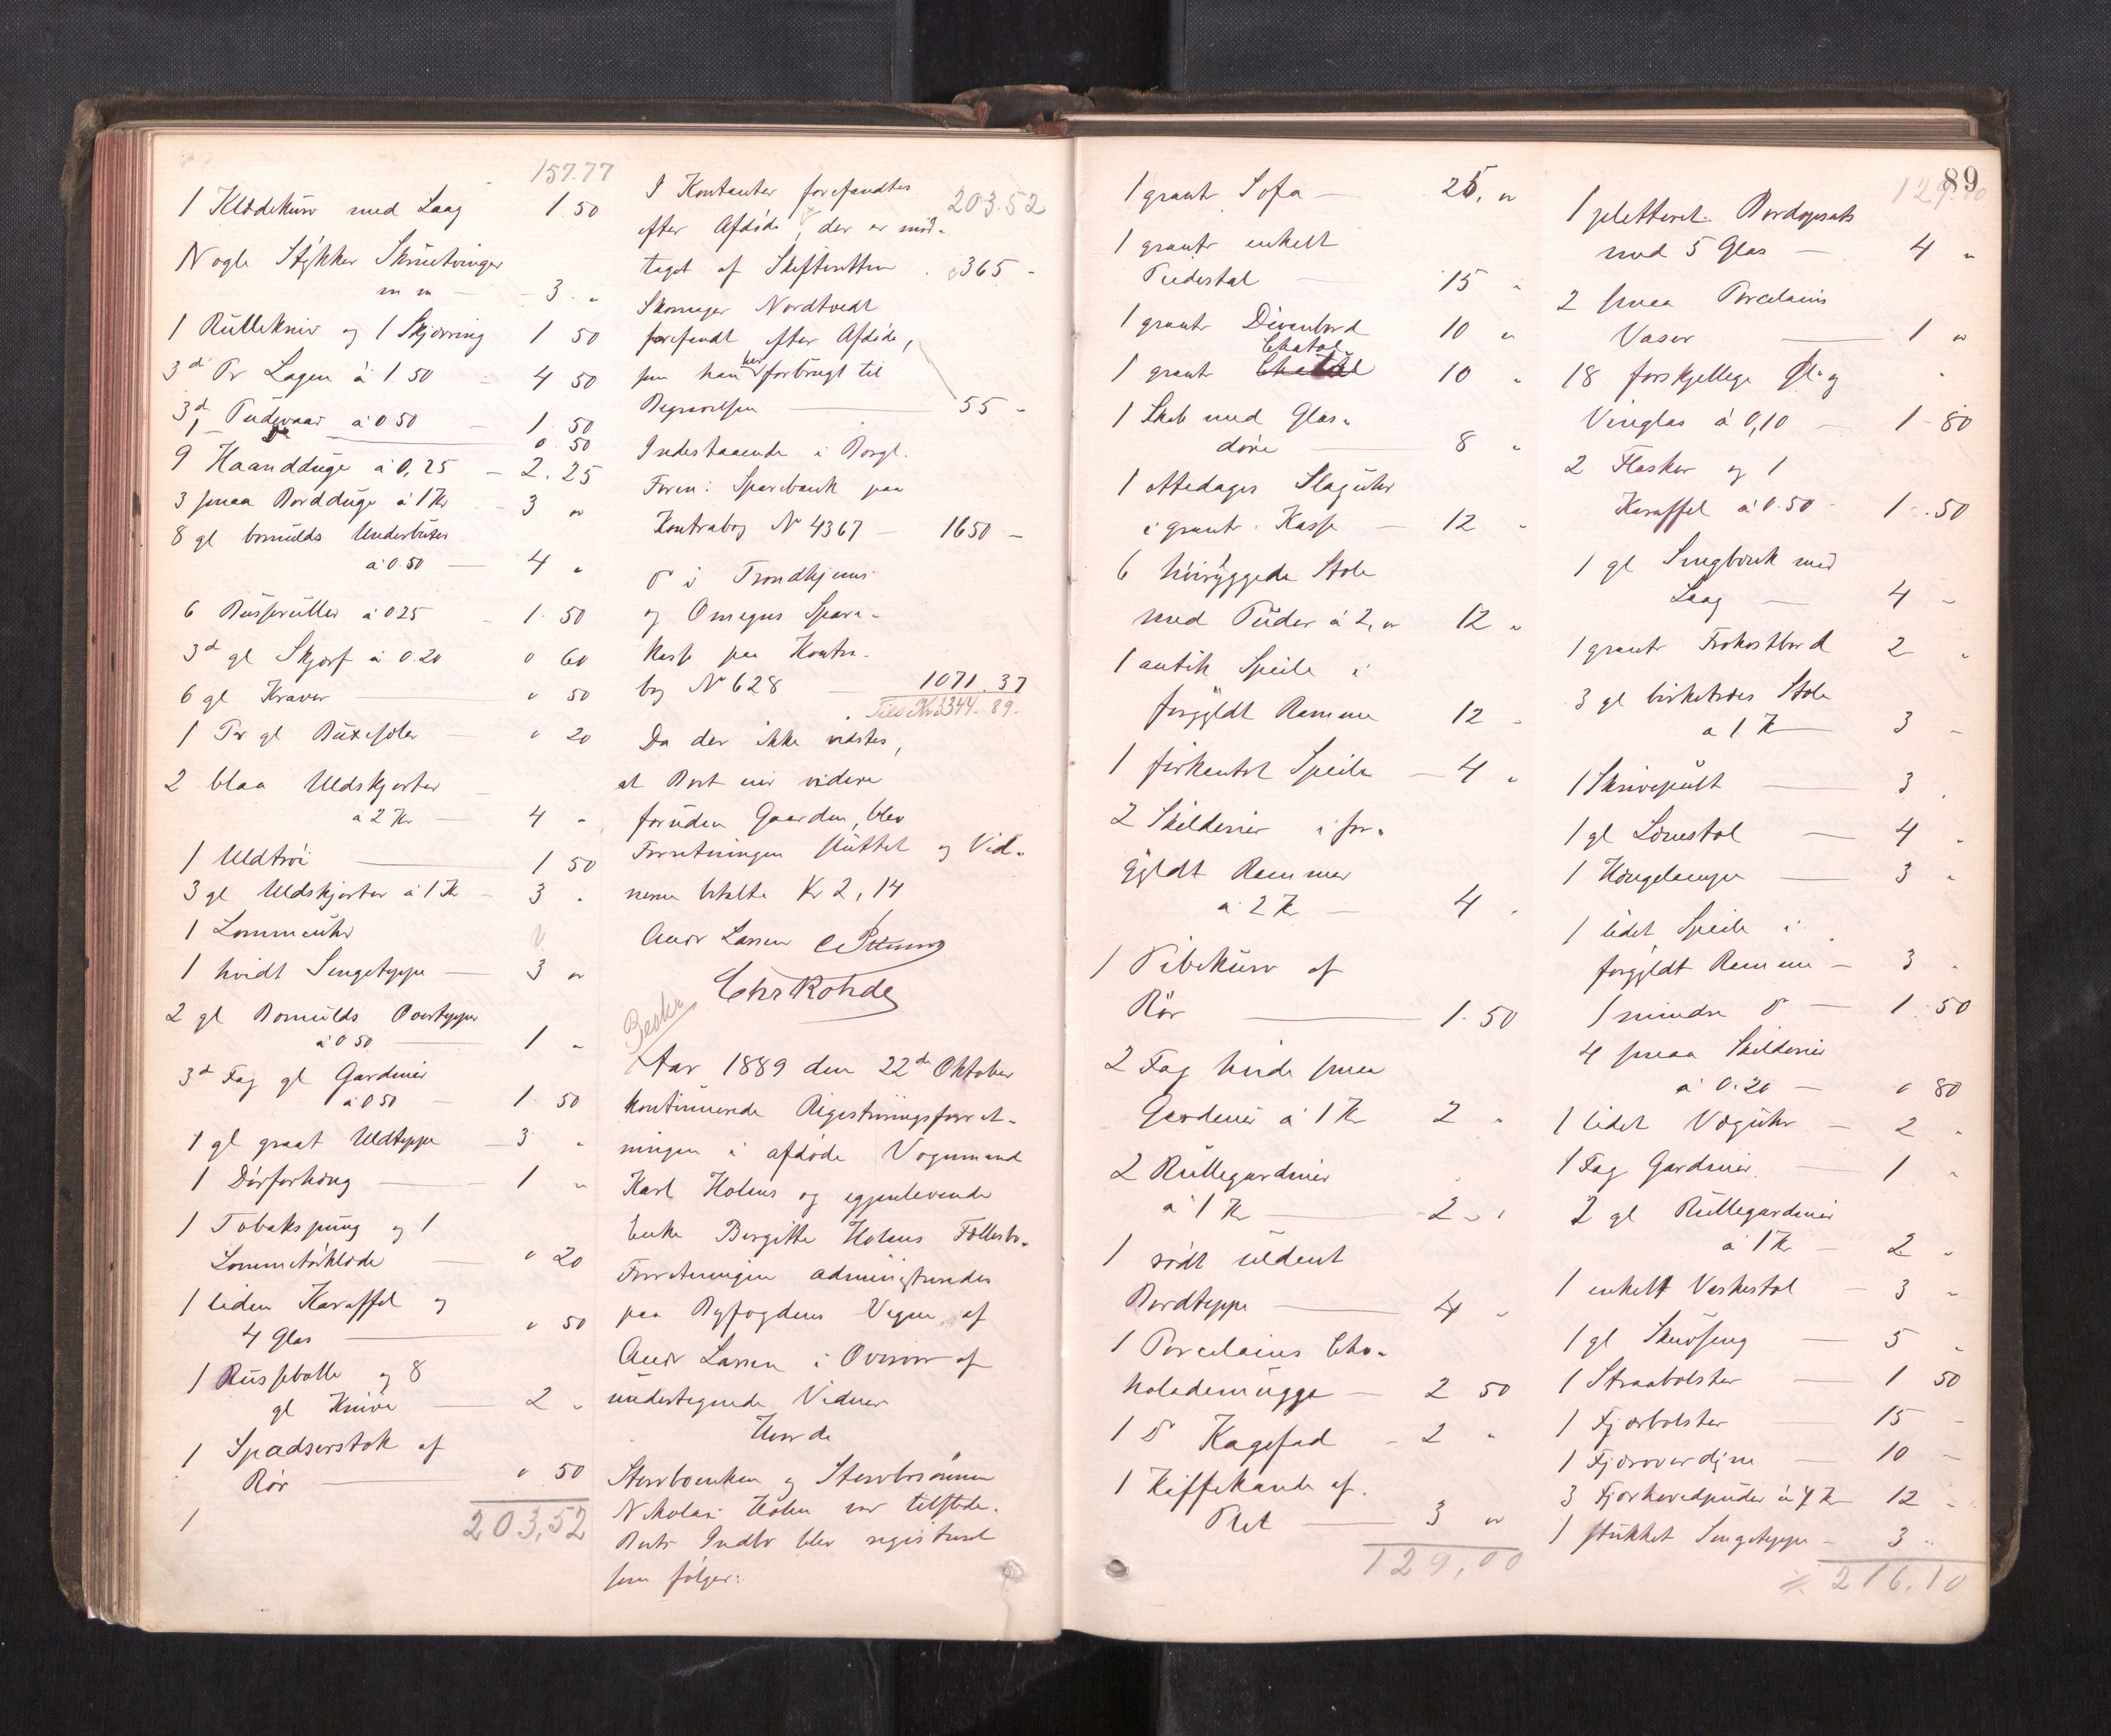 157.77
1 Klædekurv med Laag 1.50
Nogle Stykker Skruetvinger
m m — 3 "
1 Rullekniv og 1 Skjærring 1 50
3d Pr Lagen à 1.50 — 4 50
3d Pudevaar à 0 50 — 1.50
1 — 0 50
9 Haandduge à 0,25 — 2.25
3 smaa Bordduge à 1 Kr — 3 "
8 gl bomulds Underbuxer
à 0.50 — 4 "
6 Busseruller à 0 25 — 1.50
3d gl Skjærf à 0.20 " 60
6 gl Kraver — " 50
1 Par gl Buxeseler — " 20
2 blaa Uldskjorter —
à 2 Kr — 4 "
1 Uldtrøi — 1 50
3 gl Uldskjorter à 1 Kr — 3 "
1 Lommeuhr
1 hvidt Sengetæppe — 3 "
2 gl Bomulds Overtæpper
à 0 50 — 1 "
3d Fag gl Gardiner
à 0 50 — 1.50
1 gl graat Uldtæppe — 3 "
1 Dørforhæng — 1 "
1 Tobakspung og 1
Lommetørklæde — " 20
1 liden Karaffel og
4 Glas — " 50
1 Russebolle og 8
gl Knive — 2 "
1 Spadserstok af
Rør — " 50
1 203,52
203.52
I Kontanter forefandtes
efter Afdøde, der er mod-
taget af Skifteretten . 365 -
Skomager Nordtvedt
forefandt efter Afdøde,
som han har forbrugt til
Begravelsen — 55 -
Indestaaende i Borgl.
Foren: Sparebank paa
Kontrabog No 4367 — 1650 —
do i Trondhjems
og Omegns Spare-
kasse paa Kontra-
bog No 628 — 1071.37
Tils Kr 3344.89.
Da der ikke vidstes,
at Boet eier videre
foruden Gaarden, blev
Forretningen sluttet og Vid-
nerne betalte Kr 2,14
Andr Larsen
Chr Rohde
Beskr
Aar 1889 den 22de Oktober
kontinuerede Registreringsforret-
ningen i afdøde Vognmand
Karl Holms og gjenlevende
Enke Birgitte Holms Fællesbo.
Forretningen administreredes
paa Byfogdens Vegne af
Andr Larsen i Overvær af
undertegnede Vidner
Hvorde
Stervboenken og Stervbosønnen
Nikolai Holm var tilstede.
Boets Indbo blev registreret
som følger:
1 grønt Sofa — 25, "
1 grønt enkelt
Piedestal — 15 "
1 grønt Divanbord 10 "
Chatol
1 grønt Chatol 10 "
1 Skab med Glas-
døre — 8 "
1 ottedages Slaguhr
i grønt Kasse — 12 "
6 høiryggede Stole
med Puder à 2, " 12 "
1 antik Speile i
forgyldt Ramme 12 "
1 firkantet Speile — 4 "
2 Skilderier i for-
gyldt Rammer
à 2 Kr — 4 "
1 Pibekurv af
Rør — 1.50
2 Fag hvide smaa
Gardiner à 1 Kr 2 "
2 Rullegardiner
à 1 Kr — 2 "
1 rødt uldent
Bordtæppe — 4 "
1 Porcelains Cho-
kolademugge — 2 50
1 do Kagefad — 2 "
1 Kaffekande af
Plet — 3 "
129,00
89
129.00
1 pletteret Bordopsats
med 5 Glas — 4 "
2 smaa Porcelains
Vaser — 1 "
18 forskjellige Øl- og
Vinglas à 0,10 — 1 - 80
2 Flasker og 1
Karaffel à 0.50 — 1.50
1 gl Sengbænk med
Laag — 4 "
1 grønt Frokostbord 2 "
3 gl birketræes Stole
à 1 Kr — 3 "
1 Skrivepult — 3 "
1 gl Lænestol — 4 "
1 Hængelampe — 3 "
1 lidet Speile i
forgyldt Ramme — 3 "
1 mindre do — 1.50
4 smaa Skilderier
à 0.20 — " 80
1 lidet Væguhr — 2 "
1 Fag Gardiner — 1 "
2 gl Rullegardiner
à 1 Kr — 2 "
1 enkelt Vaskestol — 3 "
1 gl Skuvseng — 5 "
1 Straabolster — 1 50
1 Fjærbolster — 15 "
1 Fjæroverdyne — 10 "
3 Fjærhovedpuder à 4 Kr — 12 "
1 stukket Sengetæppe — 3 "
216.10